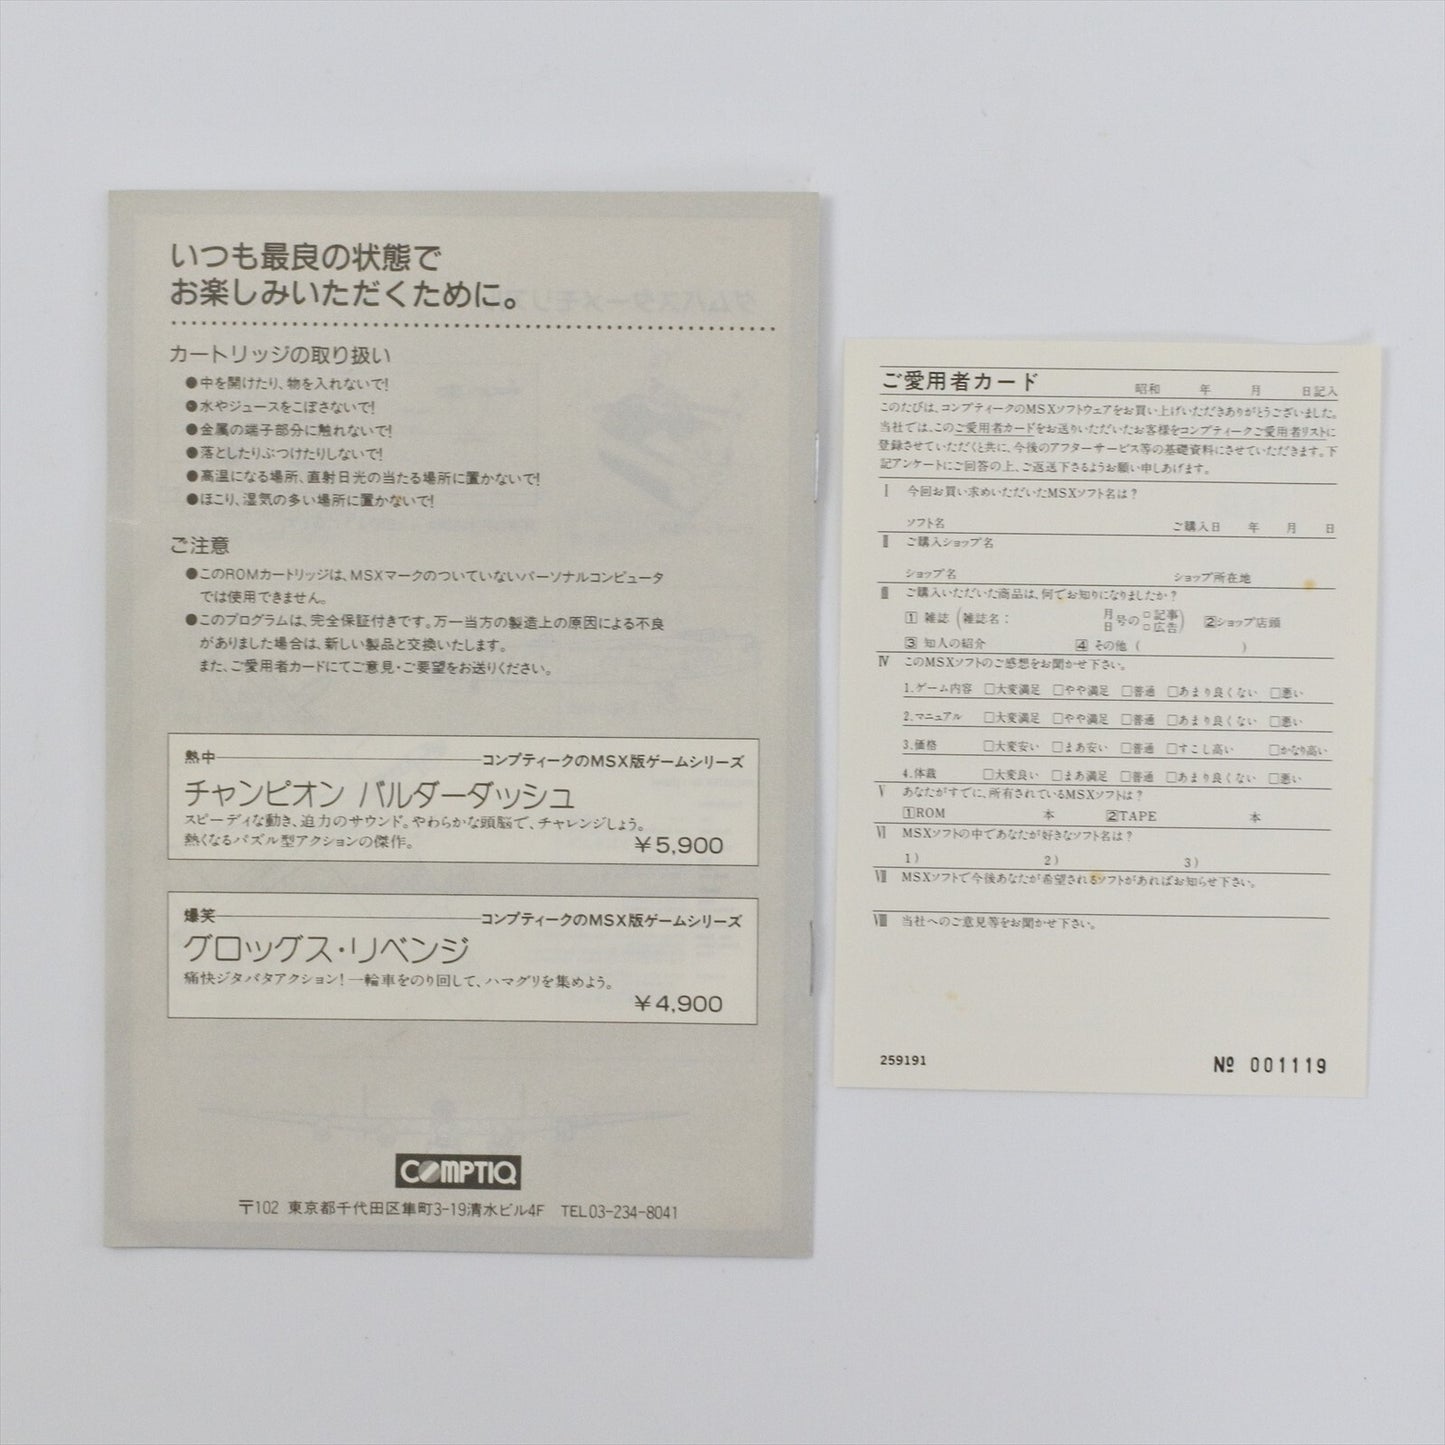 いつも最良の状態で
お楽しみいただくために。
カートリッジの取り扱い
●中を開けたり、物を入れないで!
●水やジュースをこぼさないで!
●金属の端子部分に触れないで!
●落としたりぶつけたりしないで!
●高温になる場所、直射日光の当たる場所に置かないで!
●ほこり、湿気の多い場所に置かないで!
ご注意
●このROMカートリッジは、MSXマークのついていないパーソナルコンピュータ
では使用できません。
●このプログラムは、完全保証付きです。万一当方の製造上の原因による不良
がありました場合は、新しい製品と交換いたします。
また、ご愛用者カードにてご意見・ご要望をお送りください。
熱中 コンプティークのMSX版ゲームシリーズ
チャンピオン バルダーダッシュ
スピーディな動き、迫力のサウンド。やわらかな頭脳で、チャレンジしよう。
熱くなるパズル型アクションの傑作。
¥5,900
爆笑 コンプティークのMSX版ゲームシリーズ
グロッグス・リベンジ
痛快ジタバタアクション!一輪車をのり回して、ハマグリを集めよう。
¥4,900
COMPTIQ
〒102 東京都千代田区隼町3-19清水ビル4F TEL03-234-8041
ご愛用者カード 昭和 年 月 日記入
このたびは、コンプティークのMSXソフトウェアをお買い上げいただきありがとうございました。
当社では、このご愛用者カードをお送りいただいたお客様をコンプティークご愛用者リストに
登録させていただくと共に、今後のアフターサービス等の基礎資料にさせていただきます。下
記アンケートにご回答の上、ご返送下さるようお願い申しあげます。
Ⅰ 今回お買い求めいただいたMSXソフト名は?
ソフト名 ご購入日 年 月 日
Ⅱ ご購入ショップ名
ショップ名 ショップ所在地
Ⅲ ご購入いただいた商品は、何でお知りになりましたか?
1 雑誌(雑誌名: 月日号の □記事 □広告) 2ショップ店頭
3 知人の紹介 4 その他( )
Ⅳ このMSXソフトのご感想をお聞かせ下さい。
1.ゲーム内容 □大変満足 □やや満足 □普通 □あまり良くない □悪い
2.マニュアル □大変満足 □やや満足 □普通 □あまり良くない □悪い
3.価格 □大変安い □まあ安い □普通 □すこし高い □かなり高い
4.体裁 □大変良い □まあ満足 □普通 □あまり良くない □悪い
Ⅴ あなたがすでに、所有されているMSXソフトは?
1ROM 本 2TAPE 本
Ⅵ MSXソフトの中であなたが好きなソフト名は?
1) 2) 3)
Ⅶ MSXソフトで今後あなたが希望されるソフトがあればお知らせ下さい。
Ⅷ 当社へのご意見等をお聞かせ下さい。
259191 № 001119